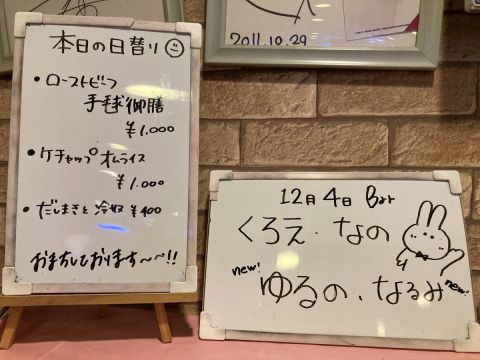 本日の日替り
・ローストビーフ
手毬御膳
¥1.000
・ケチャップオムライス
¥1.000
・だしまきと冷奴 ¥400
おまちしております〜〜!!
2011.10.29
12月4日 Bar
くろえ.なの
new!
ゆるの.なるみ
new!